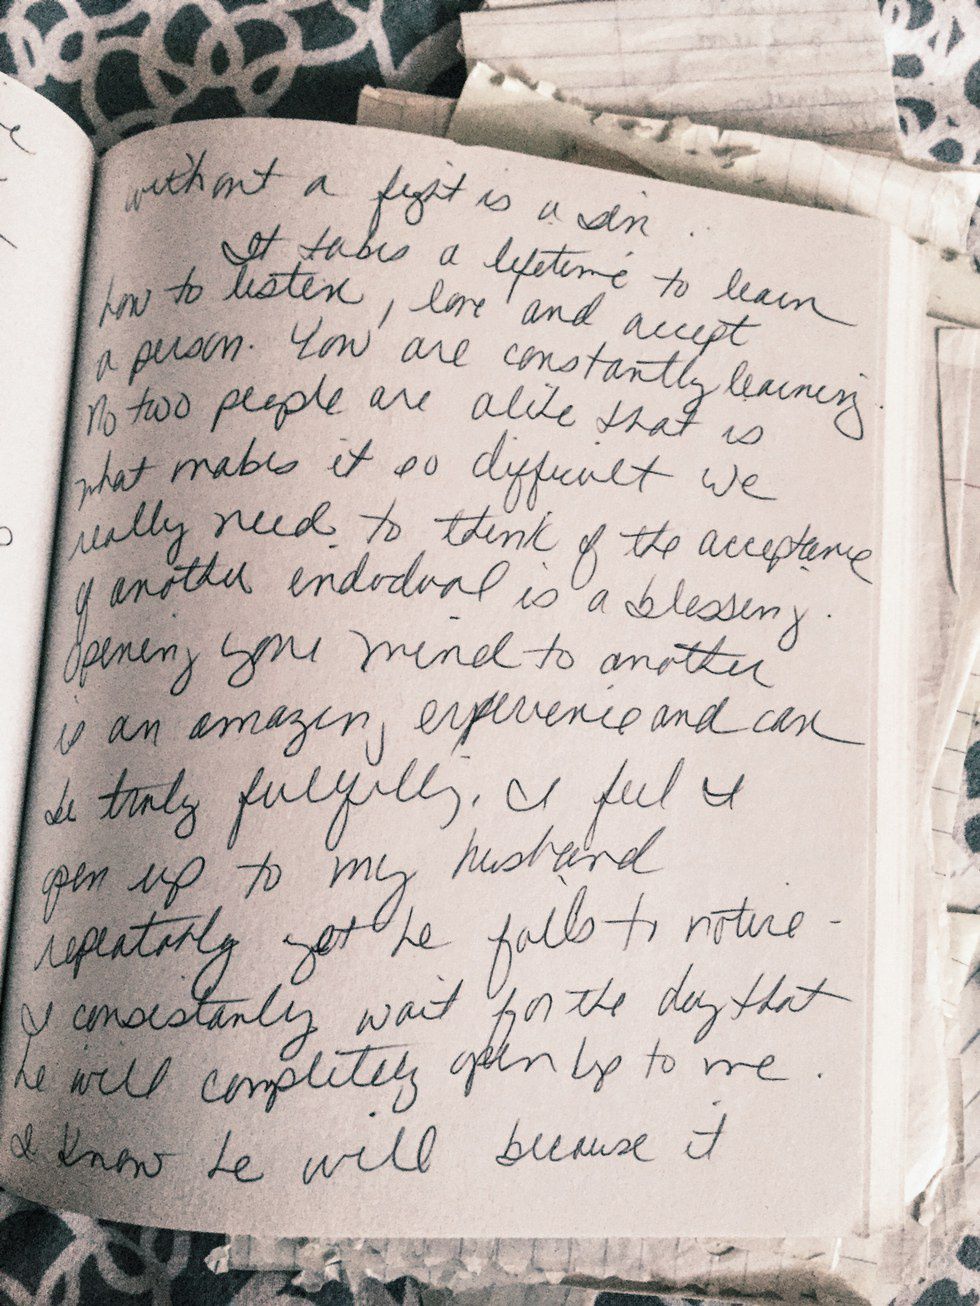 without a fight is a sin.
It takes a lifetime to learn
how to listen, love and accept
a person. You are constantly learning.
No two people are alike that is
what makes it so difficult we
really need to think of the acceptance
of another endodual is a blessing.
Opening your mind to another
is an amazing experience and can
be truly fulfully. I feel I
open up to my husband
repeatably yet he fails to notice -
I consistanly wait for the day that
he will completely open up to me.
I know he will because it